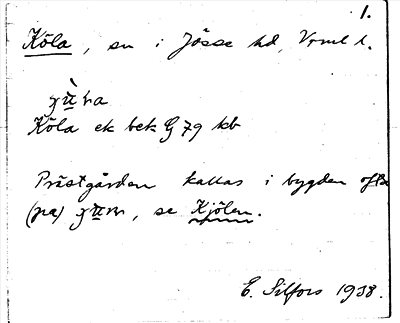 1.
Köla, sn i Jösse hd, Vrml l.
Köla ek bek G 79 kb
Prästgården kallas i bygden ofta
(på) , se Kjölen.
E. Silfors 1938.